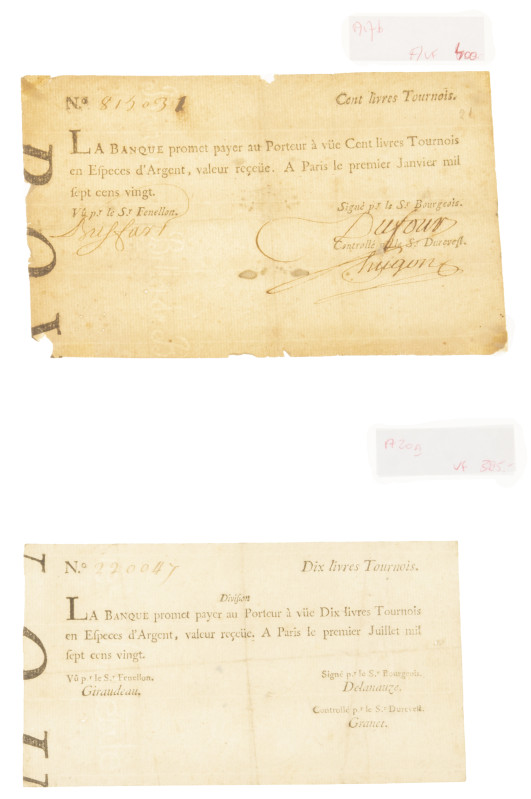 F/VF 400
N.º 815031
Cent livres Tournois.
LA BANQUE promet payer au Porteur à vûe Cent livres Tournois
en Eſpeces d'Argent, valeur reçeüe. A Paris le premier Janvier mil
ſept cens vingt.
Vû p.r le S.r Fenellon.
Signé p.r le S.r Bourgeois.
Dufour
Controllé p.r le S.r Dureveſt.
VF
N.º 220047
Dix livres Tournois.
Diviſion
LA BANQUE promet payer au Porteur à vûe Dix livres Tournois
en Eſpeces d'Argent, valeur reçeüe. A Paris le premier Juillet mil
ſept cens vingt.
Vû p.r le S.r Fenellon.
Giraudeau.
Signé p.r le S.r Bourgeois.
Delanauze.
Controllé p.r le S.r Dureveſt.
Granet.